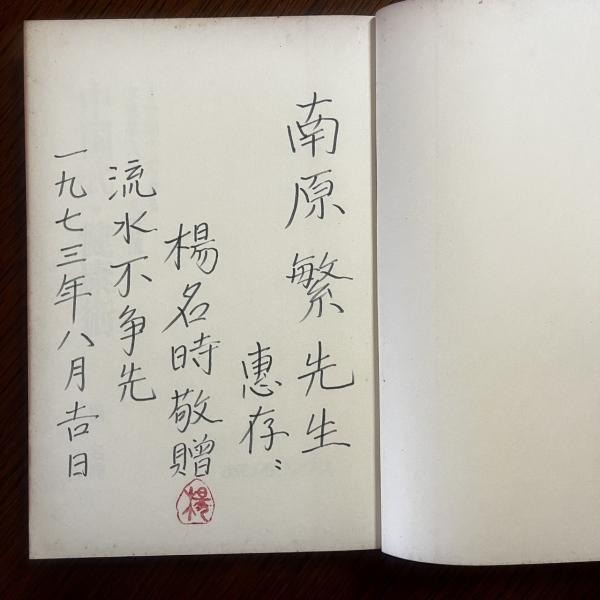 南原繁先生
惠存
楊名時敬贈
楊
流水不争先
一九七三年八月吉日